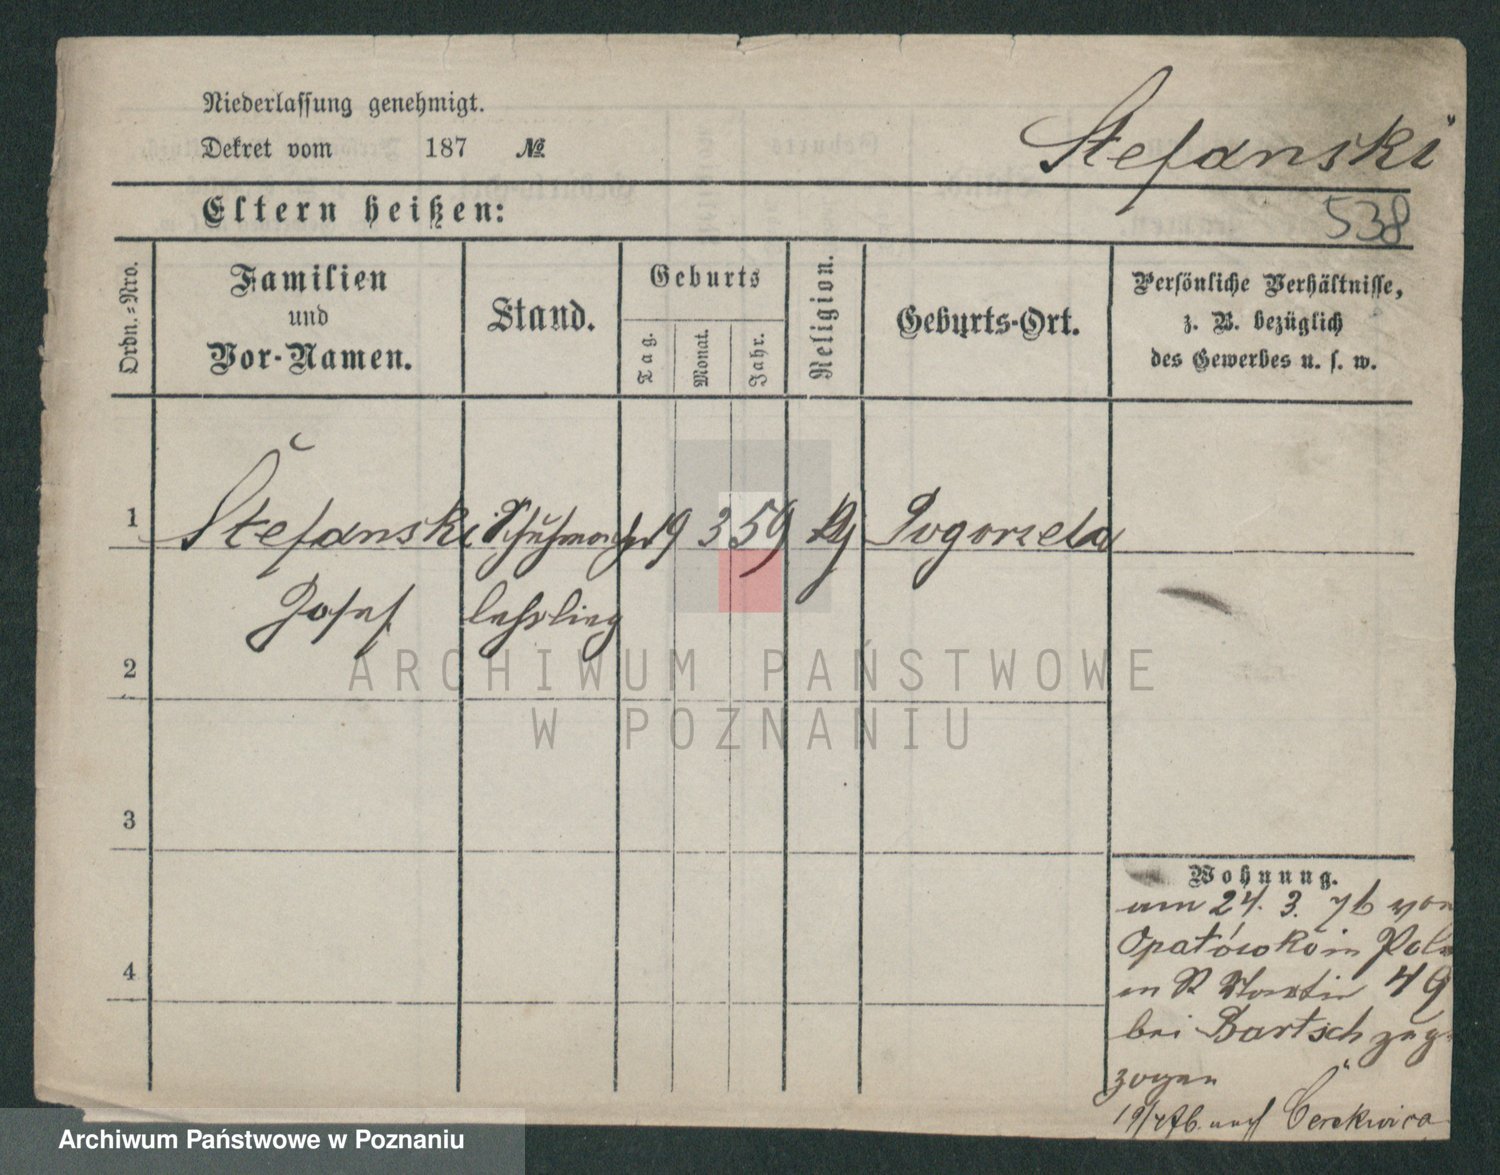 Niederlassung genehmigt.
Dekret vom 187 №
Stefanski
Eltern heißen:
538
Ordn.-Nro.
Familien
und
Vor-Namen.
Stand.
Geburts
Tag.
Monat.
Jahr.
Religion.
Geburts-Ort.
Persönliche Verhältnisse,
z. B. bezüglich
des Gewerbes u. s. w.
1 Stefanski Schuhmacher 19 3 59 Pogorzela
Josef lehrling
2
3
4
Wohnung.
am 24. 3. 76 von
Opatówko in Pol
in St Martin 49
bei Bartsch zuge
zogen
nach Cerekwica
ARCHIWUM PAŃSTWOWE
W POZNANIU
Archiwum Państwowe w Poznaniu